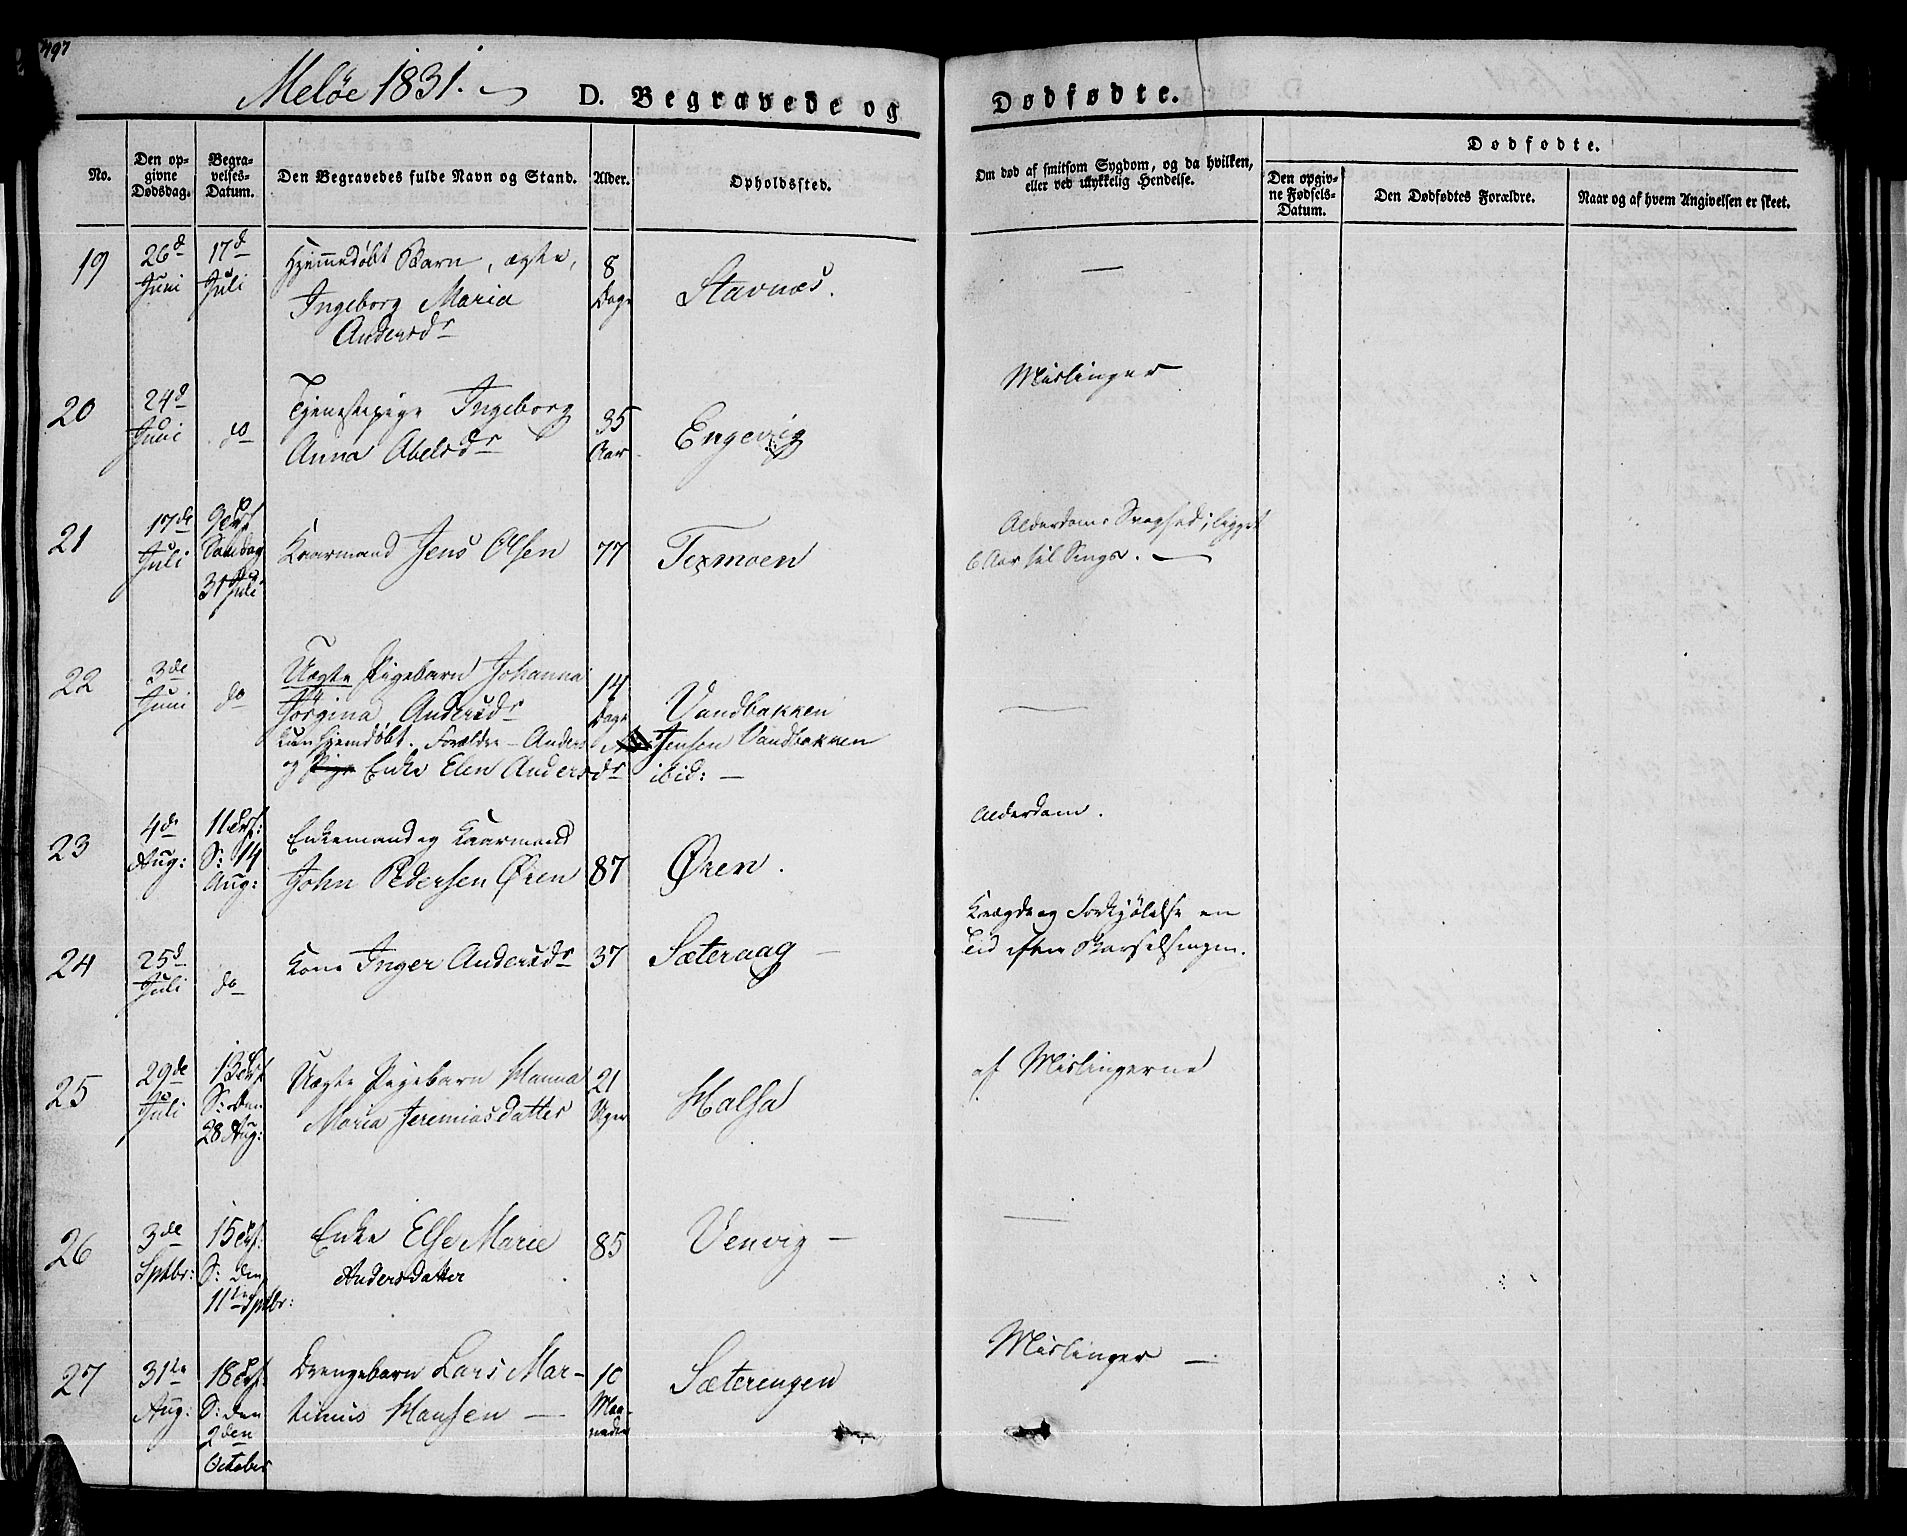 497
Meløe 1831.
D. Begravede og Dødfødte.
No.
Den op-
givne
Dødsdag.
Begra-
velses-
Datum.
Den Begravedes fulde Navn og Stand.
Alder.
Opholdssted.
Om død af smitsom Sygdom, og da hvilken,
eller ved ulykkelig Hendelse.
Dødfødte.
Den opgiv-
ne Fødsels-
Datum.
Den Dødfødtes Forældre.
Naar og af hvem Angivelsen er skeet.
19
26d
Juni
17d
Juli
Hjemmedøbt Barn, ægte,
Ingeborg Maria
Andersdr
8
Dage
Stavnæs.
20
24d
Juni
do
Tjenestepige Ingeborg
Anna Abelsdr
35
Aar
Engevig
Mislinger
21
17de
Juli
Søndag
31 Juli
Kaarmand Jens Olsen
77
Texmoen
Alderdoms Svaghed; ligget
6 Aar til Sengs.
22
3de
Juni
do
Uægte Pigebarn Johanna
Jørgina Andersdr
kun hjemdøbt. Forældre - Anders Jensen Vandbakken
og Enke Elen Andersdr ibid: -
14
Dage
Vandbakken
23
4de
Aug:
S: 14
Aug:
Enkemand og Kaarmand
John Pedersen Øren
87
Øren.
Alderdom.
24
25d
Juli
do
Kone Inger Andersdr
37
Sæteraag -
og Forkjølelse en
Tid efter Barselsengen.
25
29de
Juli
S: den
28 Aug:
Uægte Pigebarn Hanna
Maria Jeremiasdatter
21
Uger
Halsa
af Mislingerne
26
3de
Sptbr:
S: den
11te Sptbr:
Enke Else Marie
Andersdatter
85
Venvig -
27
31te
Aug:
S: den
2den
October
Drengebarn Lars Mar-
tinus Hansen -
10
Maa-
neder
Sæterengen
Mislinger -